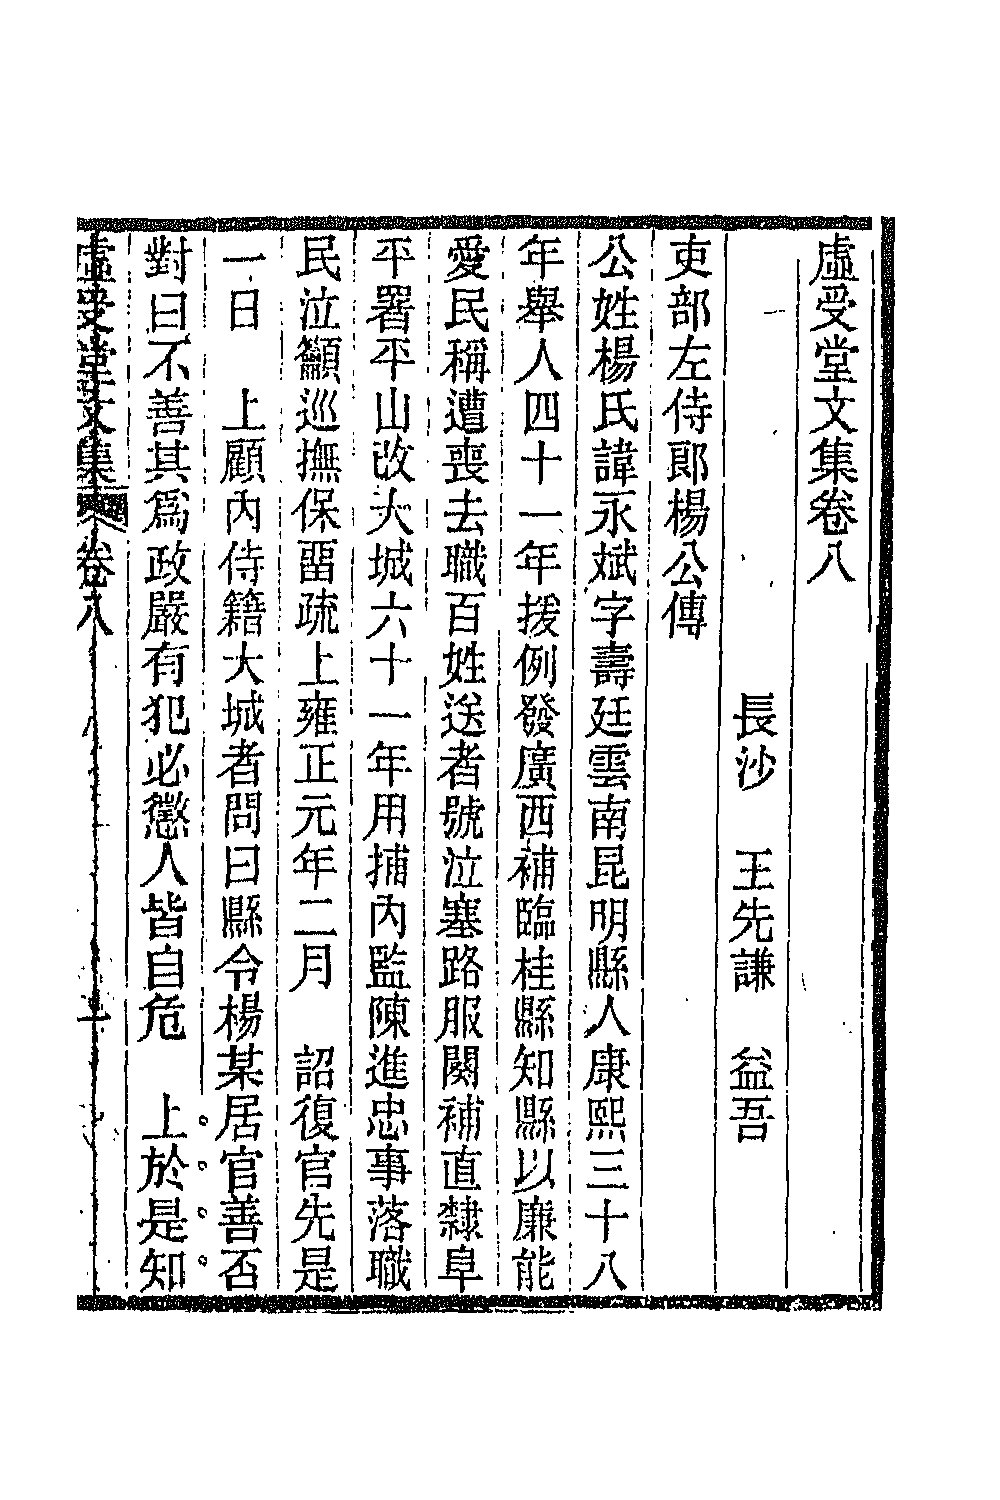 虛受堂文集卷八
長沙　王先謙　益吾
吏部左侍郎楊公傳
公姓楊氏諱永斌字壽廷雲南昆明縣人康熙三十八
年舉人四十一年援例發廣西補臨桂縣知縣以廉能
愛民稱遭喪去職百姓送者號泣塞路服闋補直隸阜
平署平山改大城六十一年用捕內監陳進忠事落職
民泣籲巡撫保畱疏上雍正元年二月　詔復官先是
一日　上顧內侍籍大城者問曰縣令楊某居官善否
對曰不善其爲政嚴有犯必懲人皆自危　上於是知
虛受堂文集　卷八　一